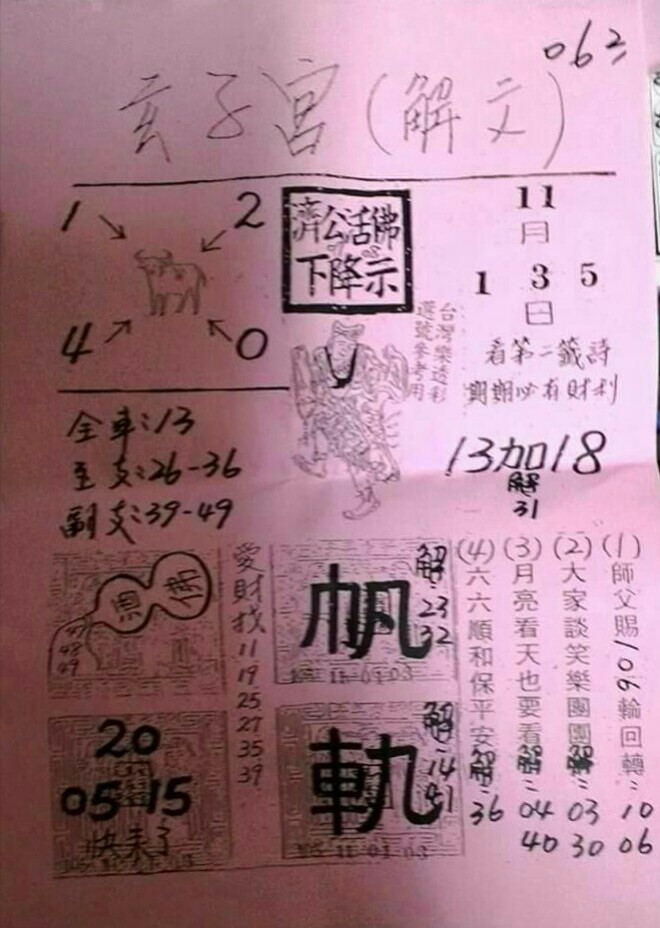 062
玄子宮(解文)
1
2
4
0
濟公活佛
下降示
台灣樂透彩
選號參考用
11
月
1 3 5
日
看第二籤詩
期期必有財利
13加18
解
31
全車:13
主支:26-36
副支:39-49
47
48
49
愛財找
11
19
25
27
35
39
帆
解
23
32
103 11 01 03
20
05 15
快來了
軌
解
14
41
103 11 01 03
(1)師父賜106輪回轉 解:10 06
(2)大家談笑樂團團 解:03 30
(3)月亮看天也要看 解:04 40
(4)六六順和保平安 解:36